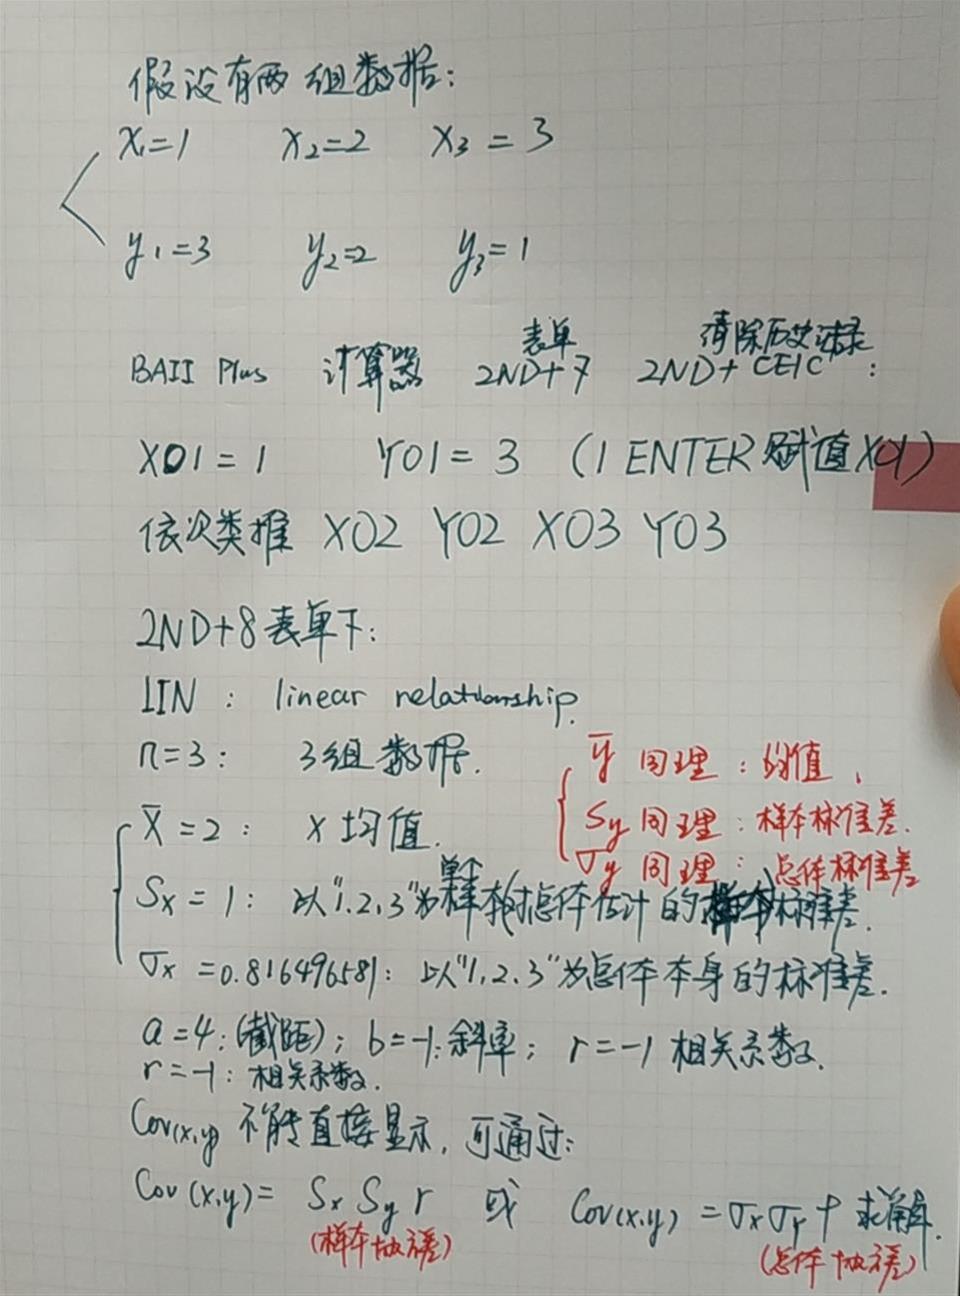 假设有两组数据:
x₁=1 x₂=2 x₃=3
y₁=3 y₂=2 y₃=1
表单 清除历史记录
BAII Plus 计算器 2ND+7 2ND+CE|C :
X01=1 Y01=3 (1 ENTER 赋值X01)
依次类推 X02 Y02 X03 Y03
2ND+8表单下:
LIN : linear relationship.
n=3: 3组数据.
x̄=2: x均值.
ȳ 同理:均值.
Sy 同理:样本标准差.
σy 同理:总体标准差
单个
Sx=1: 以"1.2.3"为样本(对总体估计的)标准差.
σx=0.816496581: 以"1,2,3"为总体本身的标准差.
a=4:(截距); b=-1:斜率; r=-1 相关系数.
r=-1:相关系数.
Cov(x,y)不能直接显示,可通过:
Cov(x,y)= Sx Sy r 或 Cov(x,y)=σxσy r 求解.
(样本协方差) (总体协方差)